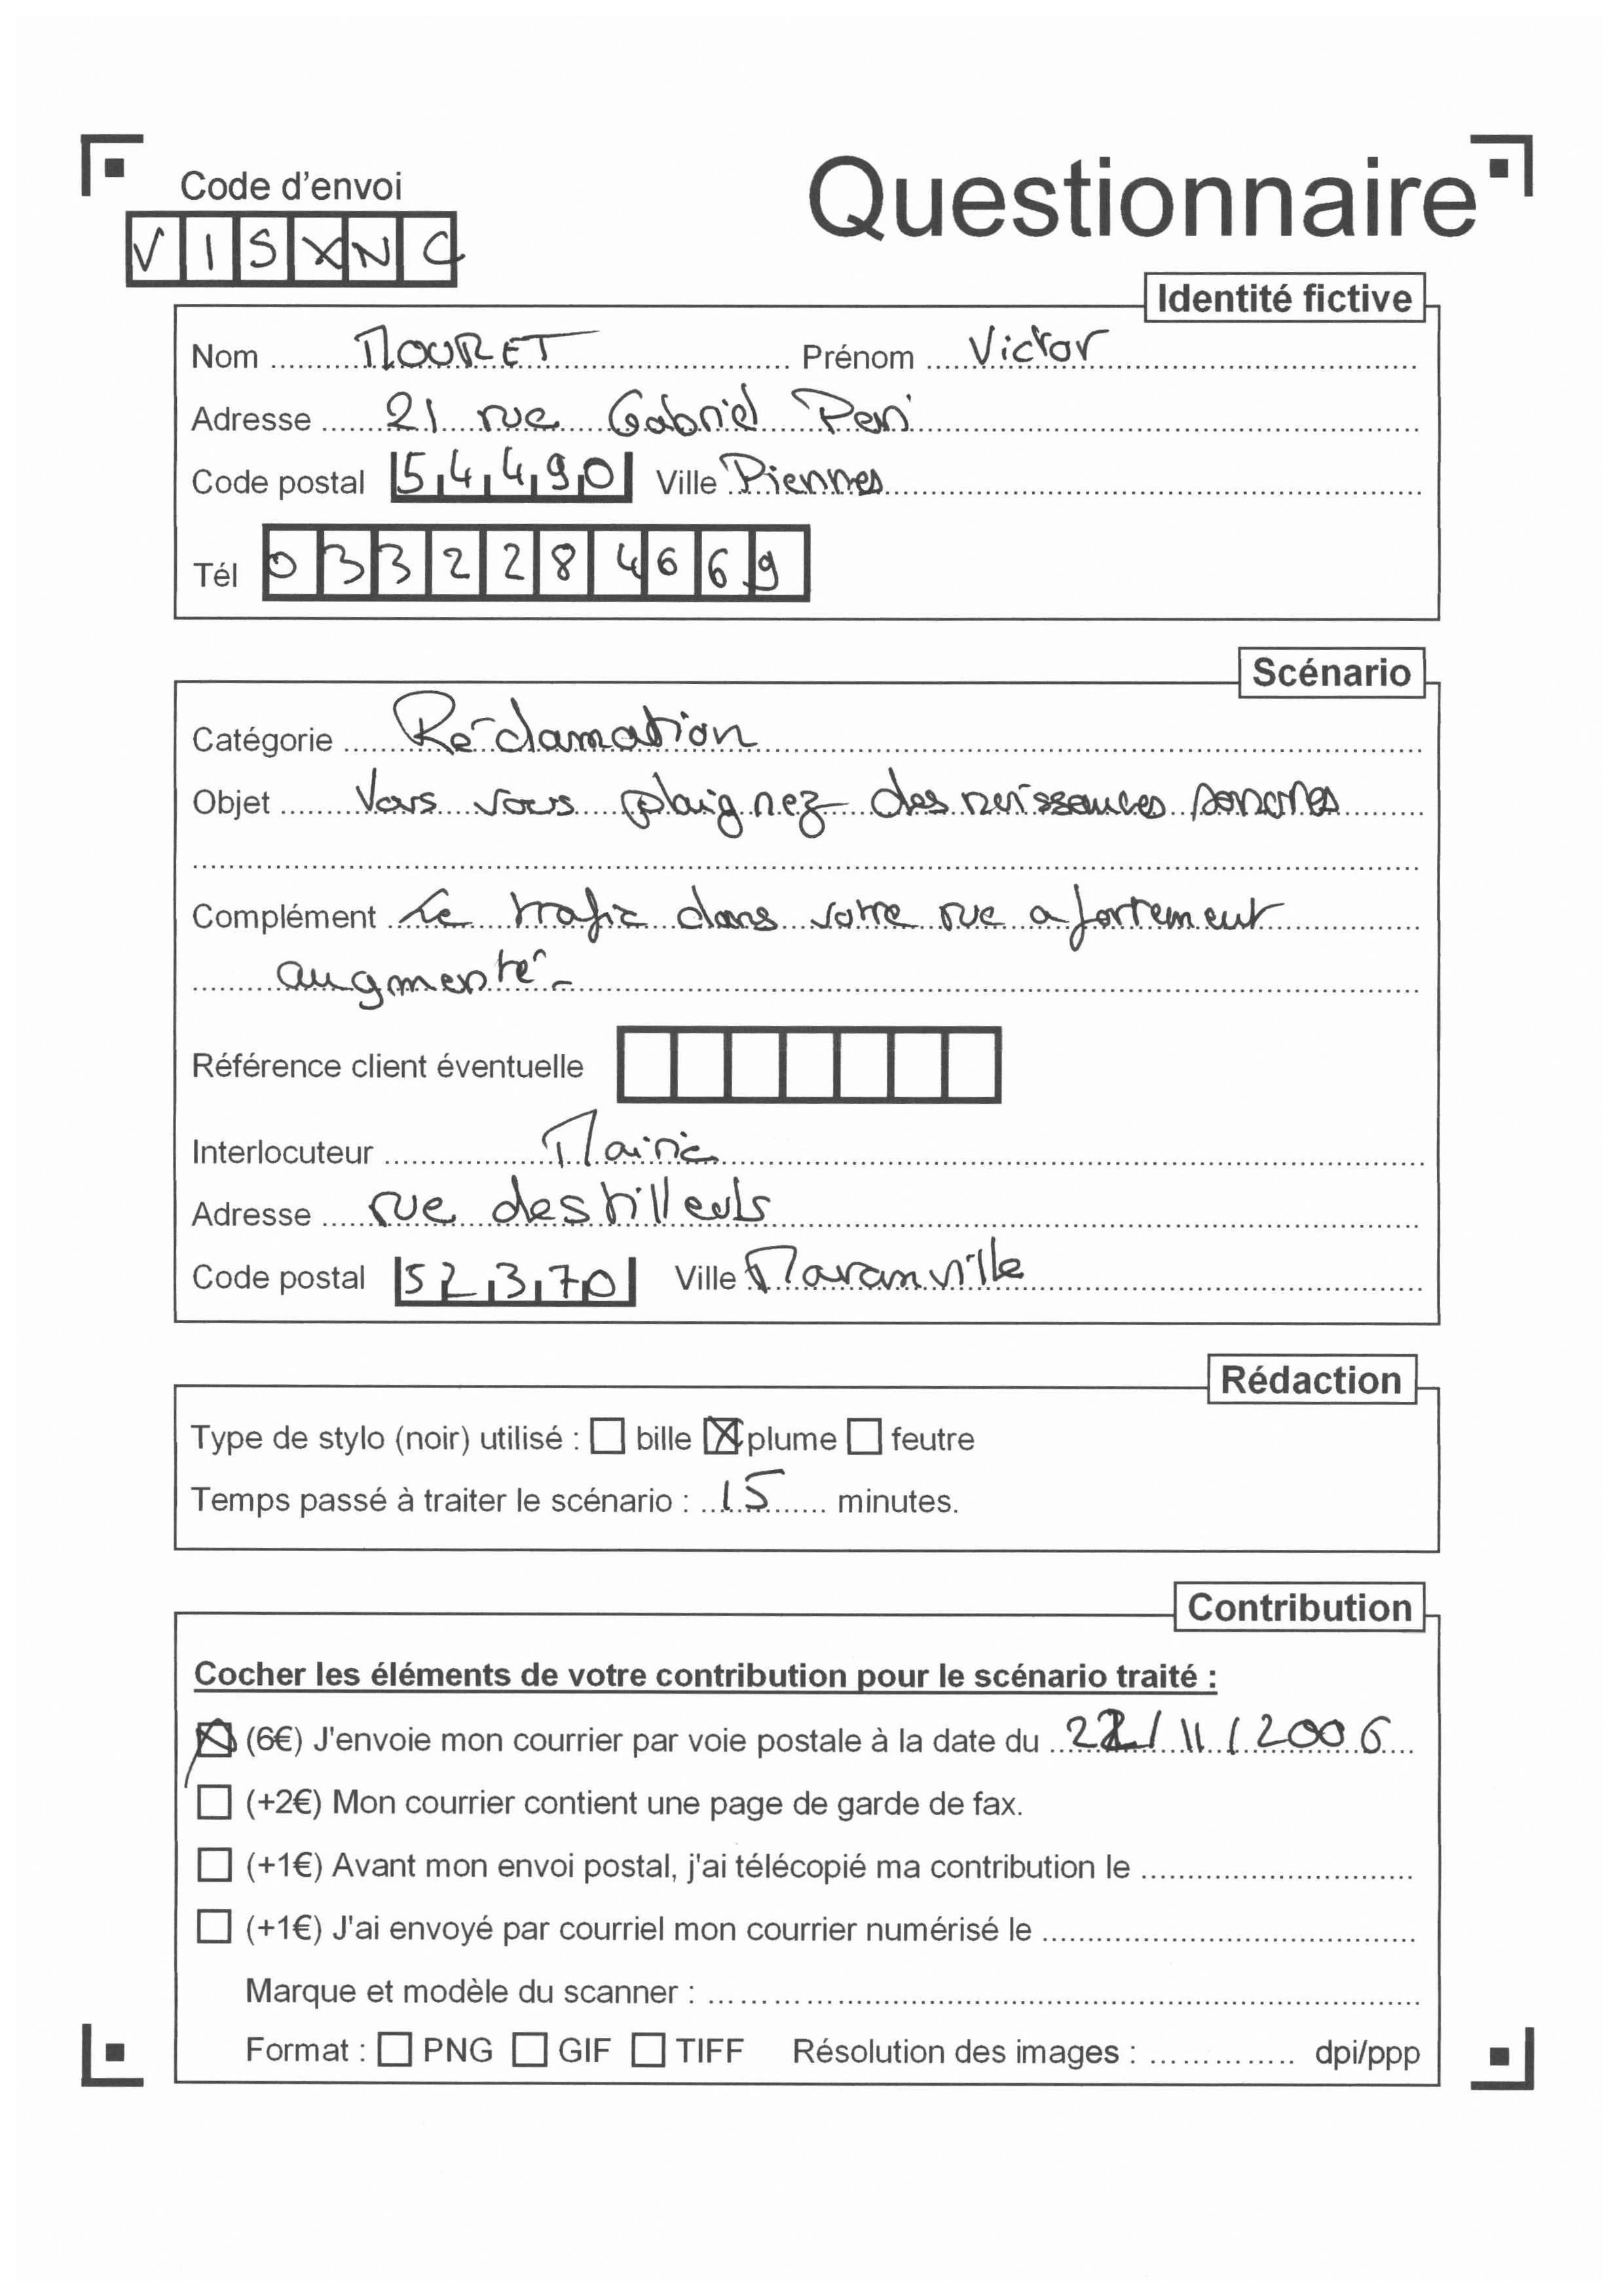 Code d'envoi
Questionnaire
V I S X N C
Identité fictive
Nom MOURET Prénom Victor
Adresse 21 rue Gabriel Peri
Code postal 54490 Ville Piennes
Tél 0332284669
Scénario
Catégorie Réclamation
Objet Vous vous plaignez des nuissances sonores
Complément Le trafic dans votre rue a fortement
augmenté.
Référence client éventuelle
Interlocuteur Mairie
Adresse rue des tilleuls
Code postal 52370 Ville Maranville
Rédaction
Type de stylo (noir) utilisé : bille plume feutre
Temps passé à traiter le scénario : 15 minutes.
Contribution
Cocher les éléments de votre contribution pour le scénario traité :
(6€) J'envoie mon courrier par voie postale à la date du 22/11/2006
(+2€) Mon courrier contient une page de garde de fax.
(+1€) Avant mon envoi postal, j'ai télécopié ma contribution le
(+1€) J'ai envoyé par courriel mon courrier numérisé le
Marque et modèle du scanner :
Format : PNG GIF TIFF Résolution des images : dpi/ppp